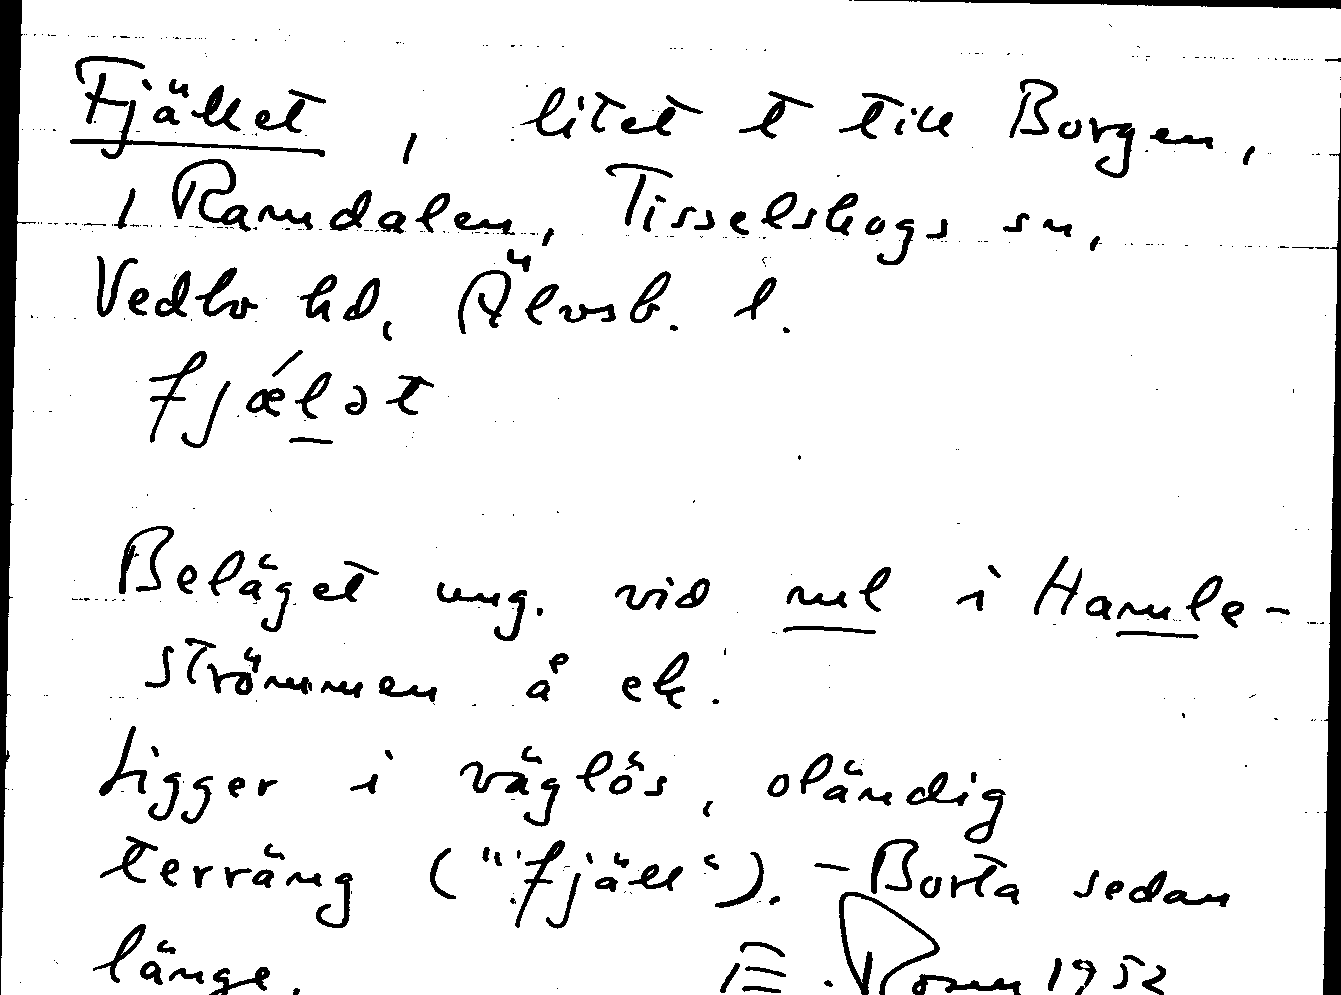 Fjället, litet t till Borgen,
i Ramdalen, Tisselskogs sn,
Vedbo hd, Älvsb. l.
fjǽlət
Beläget ung. vid ml i Hamle-
strömmen å ek.
Ligger i väglös, oländig
terräng ("fjäll"). - Borta sedan
länge. E. Rosen 1952